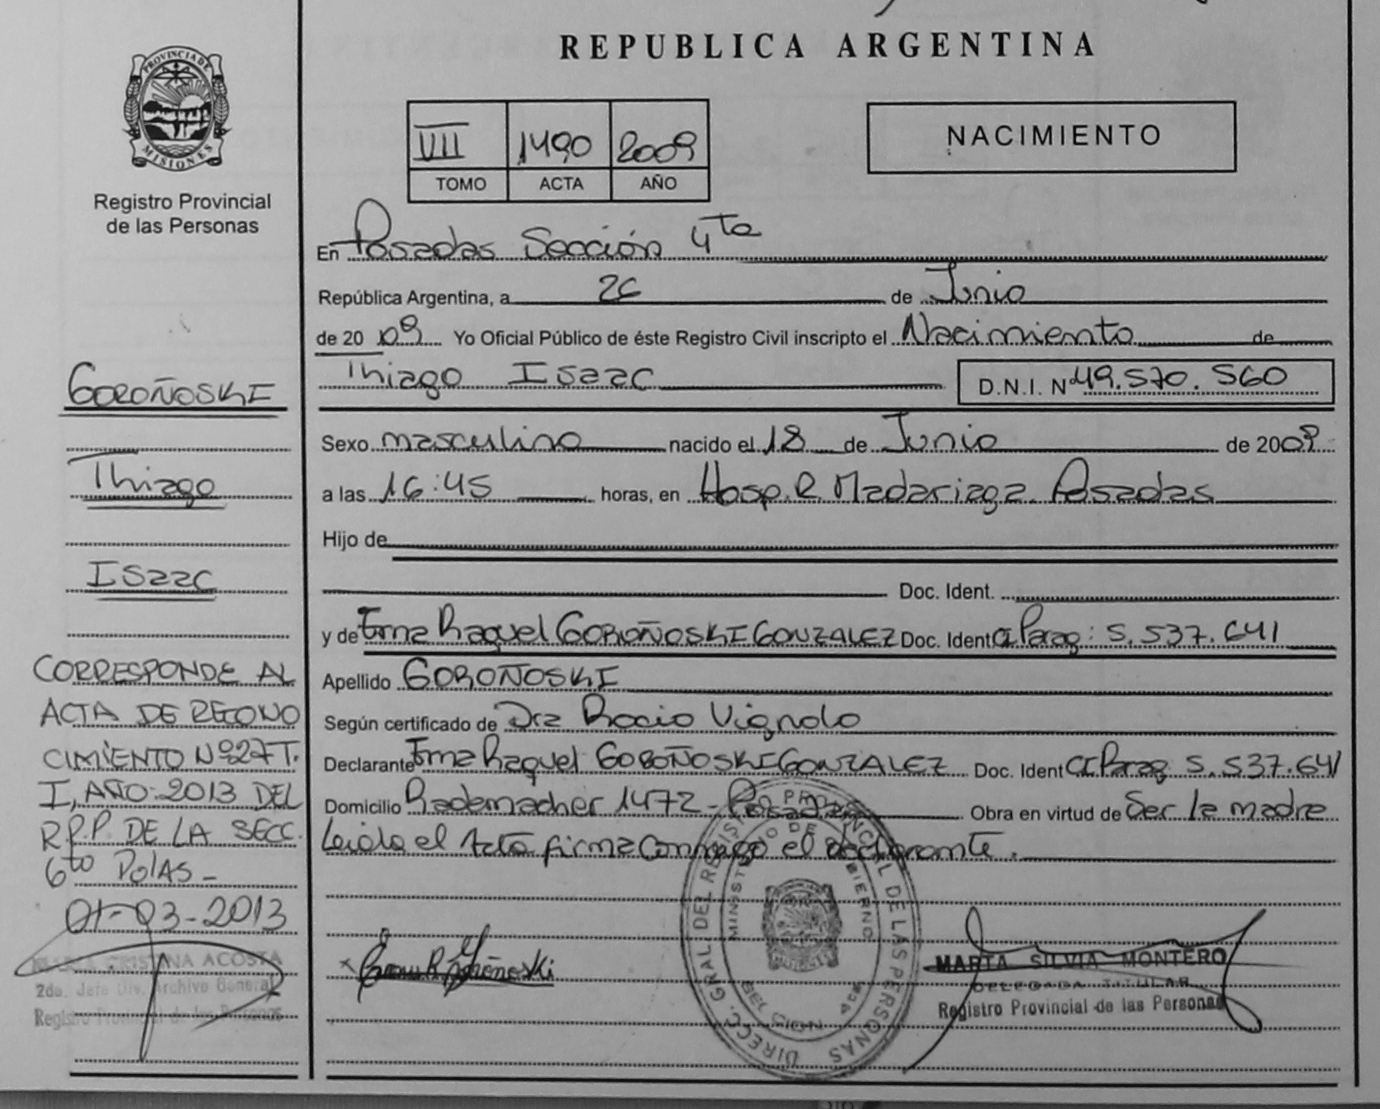 REPUBLICA ARGENTINA
PROVINCIA DE MISIONES
Registro Provincial
de las Personas
VII 1490 2009
TOMO ACTA AÑO
NACIMIENTO
En Posadas Sección 4ta
República Argentina, a 26 de Junio
de 2009 Yo Oficial Público de éste Registro Civil inscripto el Nacimiento de
Thiago Isaac D.N.I. Nº 49.570.560
Sexo masculino nacido el 18 de Junio de 2009
a las 16:45 horas, en Hosp. R. Madariaga Posadas
Hijo de
Doc. Ident.
y de Erma Raquel GOROÑOSKI GONZALEZ Doc. Ident CI Parag: 5.537.641
Apellido GOROÑOSKI
Según certificado de Dra Rocio Vignolo
Declarante Erma Raquel GOROÑOSKI GONZALEZ Doc. Ident CI Parag 5.537.641
Domicilio Rademacher 1472 - Posadas Obra en virtud de Ser la madre
Leida el Acta firma conmigo el declarante.
GOROÑOSKI
Thiago
Isaac
CORRESPONDE AL
ACTA DE RECONO
CIMIENTO Nº 227 T.
I, AÑO: 2013 DEL
R.P.P. DE LA SECC.
6to PDAS -
01-03-2013
MARIA CRISTINA ACOSTA
2da. Jefe Div. Archivo General
Registro Provincial de las Personas
DIRECC. GRAL. DEL REGIS. PROVINCIAL DE LAS PERSONAS
MINISTERIO DE GOBIERNO
MARTA SILVIA MONTERO
DELEGADA TITULAR
Registro Provincial de las Personas